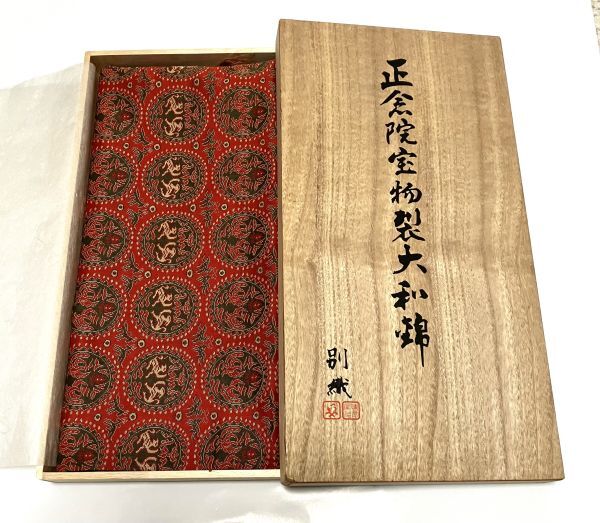 正倉院宝物裂大和錦
別織